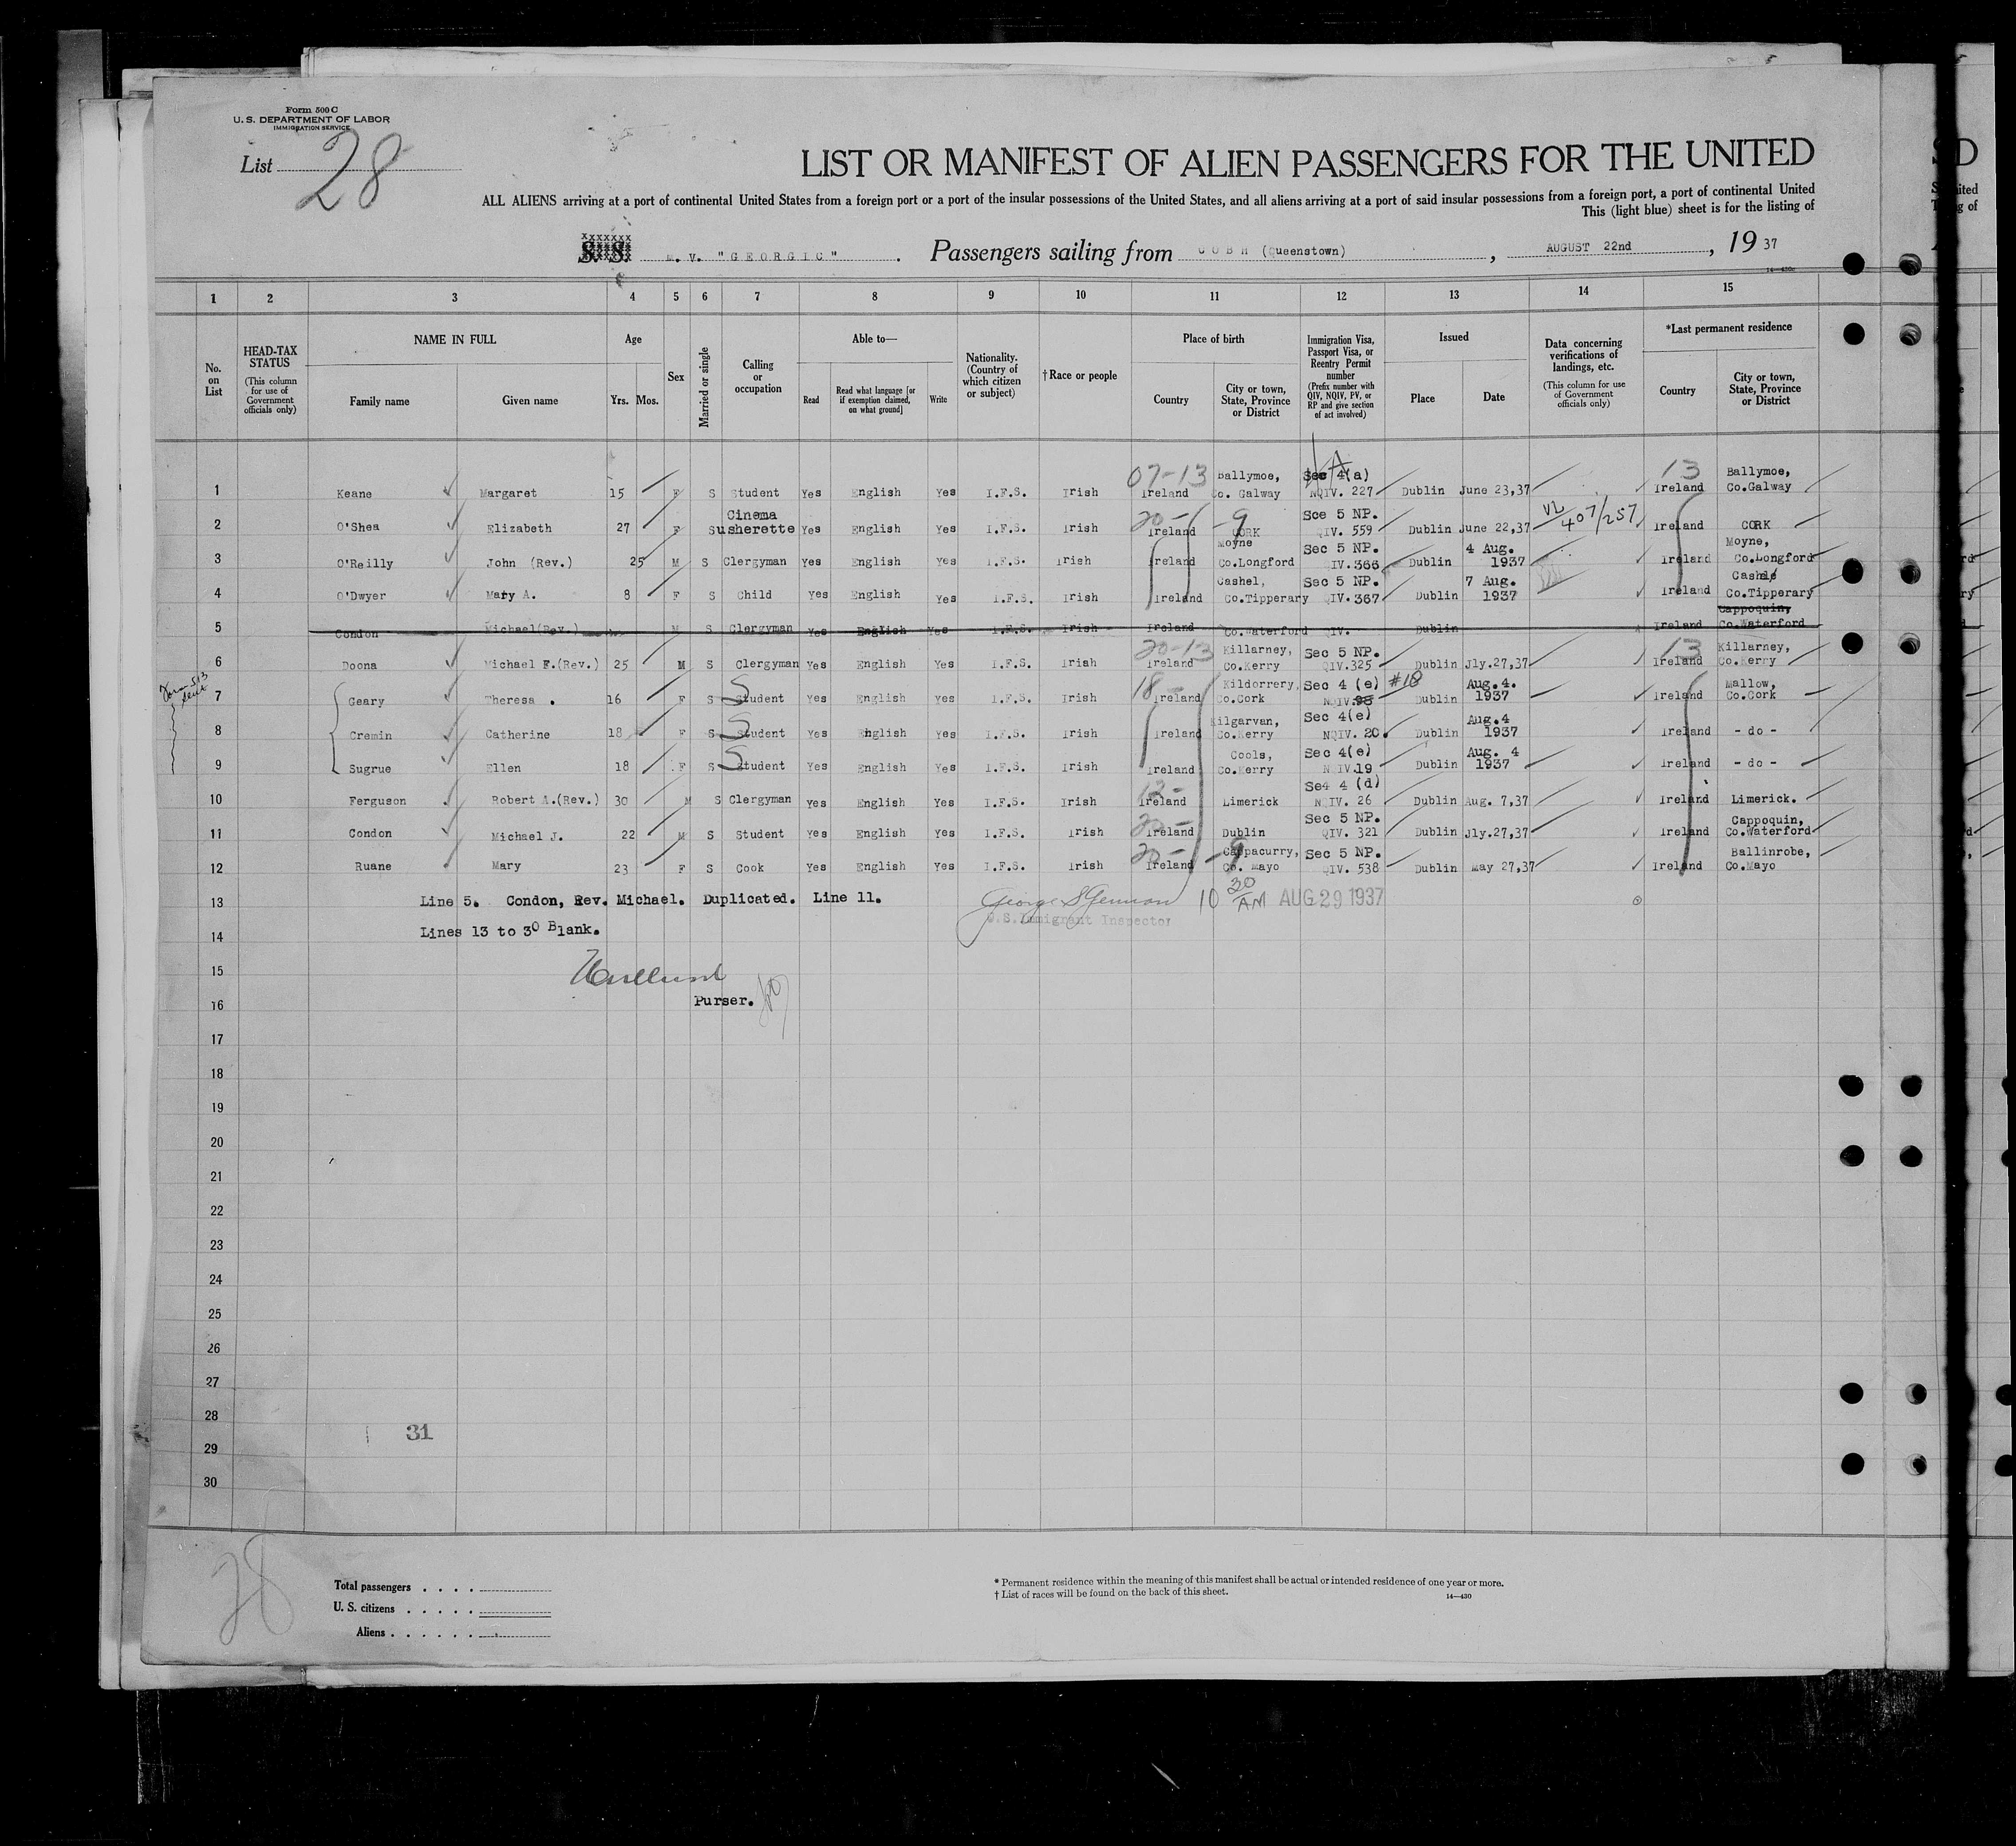 Form 500 C
U. S. DEPARTMENT OF LABOR
IMMIGRATION SERVICE
List 28
LIST OR MANIFEST OF ALIEN PASSENGERS FOR THE UNITED
ALL ALIENS arriving at a port of continental United States from a foreign port or a port of the insular possessions of the United States, and all aliens arriving at a port of said insular possessions from a foreign port, a port of continental United
This (light blue) sheet is for the listing of
S. S. M. V. "GEORGIC". Passengers sailing from COBH (Queenstown), AUGUST 22nd, 1937
14—430c
1 2 3 4 5 6 7 8 9 10 11 12 13 14 15
No. on List
HEAD-TAX STATUS
(This column for use of Government officials only)
NAME IN FULL
Family name Given name
Age
Yrs. Mos.
Sex
Married or single
Calling or occupation
Able to—
Read
Read what language [or if exemption claimed, on what ground]
Write
Nationality. (Country of which citizen or subject)
† Race or people
Place of birth
Country
City or town, State, Province or District
Immigration Visa, Passport Visa, or Reentry Permit number
(Prefix number with QIV, NQIV, PV, or RP and give section of act involved)
Issued
Place Date
Data concerning verifications of landings, etc.
(This column for use of Government officials only)
*Last permanent residence
Country
City or town, State, Province or District
07-13 Ballymoe, Sec 4(a) 13 Ballymoe,
1 Keane Margaret 15 F S Student Yes English Yes I.F.S. Irish Ireland Co. Galway NQIV. 227 Dublin June 23,37 Ireland Co.Galway
Cinema 20- -9 Sce 5 NP. VL 407/257
2 O'Shea Elizabeth 27 F S usherette Yes English Yes I.F.S. Irish Ireland CORK QIV. 559 Dublin June 22,37 Ireland CORK
Moyne Sec 5 NP. 4 Aug. Moyne,
3 O'Reilly John (Rev.) 25 M S Clergyman Yes English Yes I.F.S. Irish Ireland Co.Longford IV.366 Dublin 1937 Ireland Co.Longford
Cashel, Sec 5 NP. 7 Aug. Cashel
4 O'Dwyer Mary A. 8 F S Child Yes English Yes I.F.S. Irish Ireland Co.Tipperary QIV.367 Dublin 1937 Ireland Co.Tipperary
Cappoquin,
5 Condon Michael(Rev.) M S Clergyman Yes English Yes I.F.S. Irish Ireland Co.Waterford QIV. Dublin Ireland Co.Waterford
20-13 Killarney, Sec 5 NP. 13 Killarney,
6 Doona Michael F.(Rev.) 25 M S Clergyman Yes English Yes I.F.S. Iriah Ireland Co.Kerry QIV.325 Dublin Jly.27,37 Ireland Co.Kerry
18- Kildorrery, Sec 4 (e) #18 Aug.4. Mallow,
7 Geary Theresa . 16 F S Student Yes English Yes I.F.S. Irish Ireland Co.Cork NQIV.98 Dublin 1937 Ireland Co.Cork
Kilgarvan, Sec 4(e) Aug.4
8 Cremin Catherine 18 F S Student Yes English Yes I.F.S. Irish Ireland Co.Kerry NQIV. 20. Dublin 1937 Ireland - do -
Cools, Sec 4(e) Aug. 4
9 Sugrue Ellen 18 F S Student Yes English Yes I.F.S. Irish Ireland Co.Kerry NQIV.19 Dublin 1937 Ireland - do -
Se4 4 (d)
10 Ferguson Robert A.(Rev.) 30 M S Clergyman Yes English Yes I.F.S. Irish Ireland Limerick NQIV. 26 Dublin Aug. 7,37 Ireland Limerick.
20- Sec 5 NP. Cappoquin,
11 Condon Michael J. 22 M S Student Yes English Yes I.F.S. Irish Ireland Dublin QIV. 321 Dublin Jly.27,37 Ireland Co.Waterford
20- -9 Cappacurry, Sec 5 NP. Ballinrobe,
12 Ruane Mary 23 F S Cook Yes English Yes I.F.S. Irish Ireland Co. Mayo QIV. 538 Dublin May 27,37 Ireland Co.Mayo
13 Line 5. Condon, Rev. Michael. Duplicated. Line 11. George 10 30 AM AUG 29 1937
U.S.Immigrant Inspector
14 Lines 13 to 30 Blank.
15
16 Purser.
17
18
19
20
21
22
23
24
25
26
27
28 31
29
30
28
Total passengers
U. S. citizens
Aliens
* Permanent residence within the meaning of this manifest shall be actual or intended residence of one year or more.
† List of races will be found on the back of this sheet.
14—430